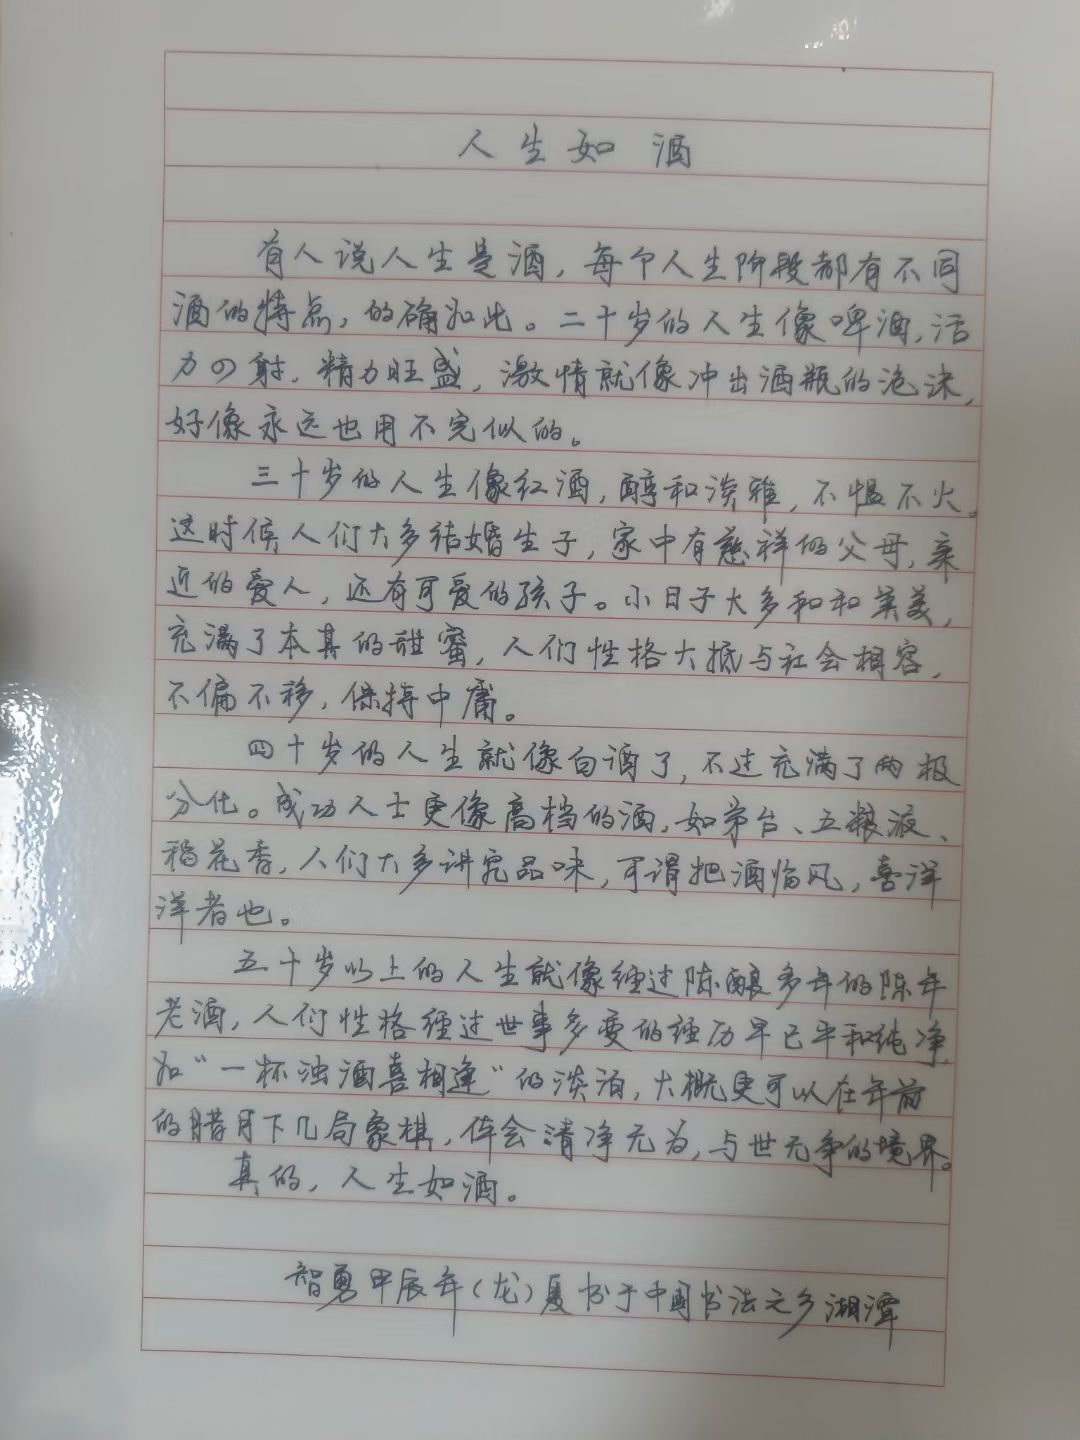 人生如酒
有人说人生是酒，每个人生阶段都有不同
酒的特点，的确如此。二十岁的人生像啤酒，活
力四射，精力旺盛，激情就像冲出酒瓶的泡沫，
好像永远也用不完似的。
三十岁的人生像红酒，醇和淡雅，不愠不火。
这时候人们大多结婚生子，家中有慈祥的父母，亲
近的爱人，还有可爱的孩子。小日子大多和和美美，
充满了本真的甜蜜，人们性格大抵与社会相容，
不偏不移，保持中庸。
四十岁的人生就像白酒了，不过充满了两极
分化。成功人士更像高档的酒，如茅台、五粮液、
稻花香，人们大多讲究品味，可谓把酒临风，喜洋
洋者也。
五十岁以上的人生就像经过陈酿多年的陈年
老酒，人们性格经过世事多变的经历早已平和纯净，
如“一杯浊酒喜相逢”的淡泊，大概更可以在年前
的腊月下几局象棋，体会清净无为，与世无争的境界。
真的，人生如酒。
智勇甲辰年（龙）夏书于中国书法之乡湘潭